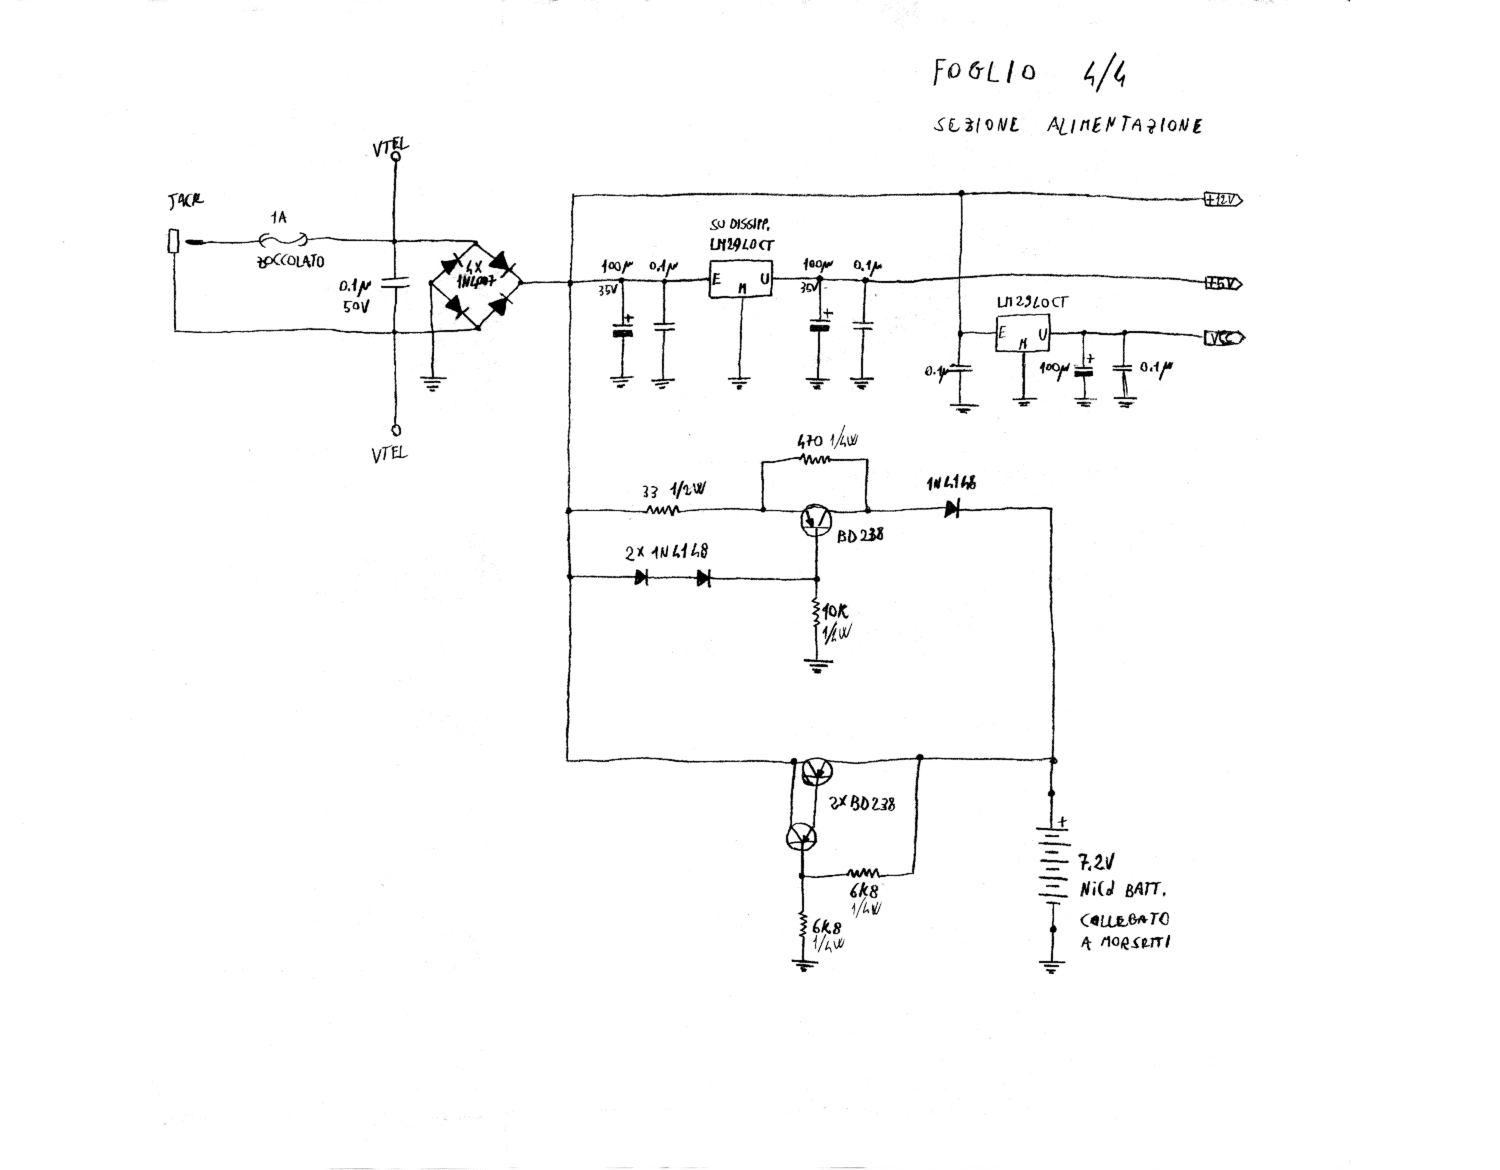 FOGLIO 4/4
SEZIONE ALIMENTAZIONE
VTEL
JACK
1A
ZOCCOLATO
0.1µ
50V
4X
1N4007
VTEL
+12V
SU DISSIPP.
LM2940CT
100µ
35V
0.1µ
E U
M
100µ
35V
0.1µ
+
+
+5V
LM2940CT
E U
M
VCC
0.1µ
100µ
+
0.1µ
470 1/4W
33 1/2W
1N4148
BD238
2X 1N4148
10K
1/4W
2XBD238
6K8
1/4W
6K8
1/4W
+
7.2V
NiCd BATT.
COLLEGATO
A MORSETTI